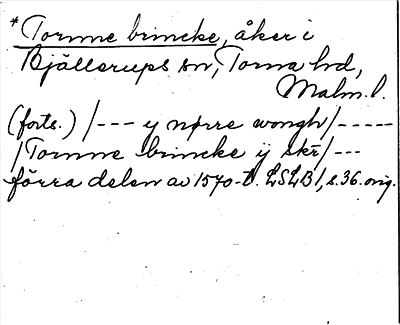 *Tornne brincke, åker i
Bjällerups sn, Torna hd,
Malm. l.
(forts.) /--- y nørre wongh/-----
/Tornne brincke ij skr̄/---
förra delen av 1570-t. LSLB1, s. 36. orig.